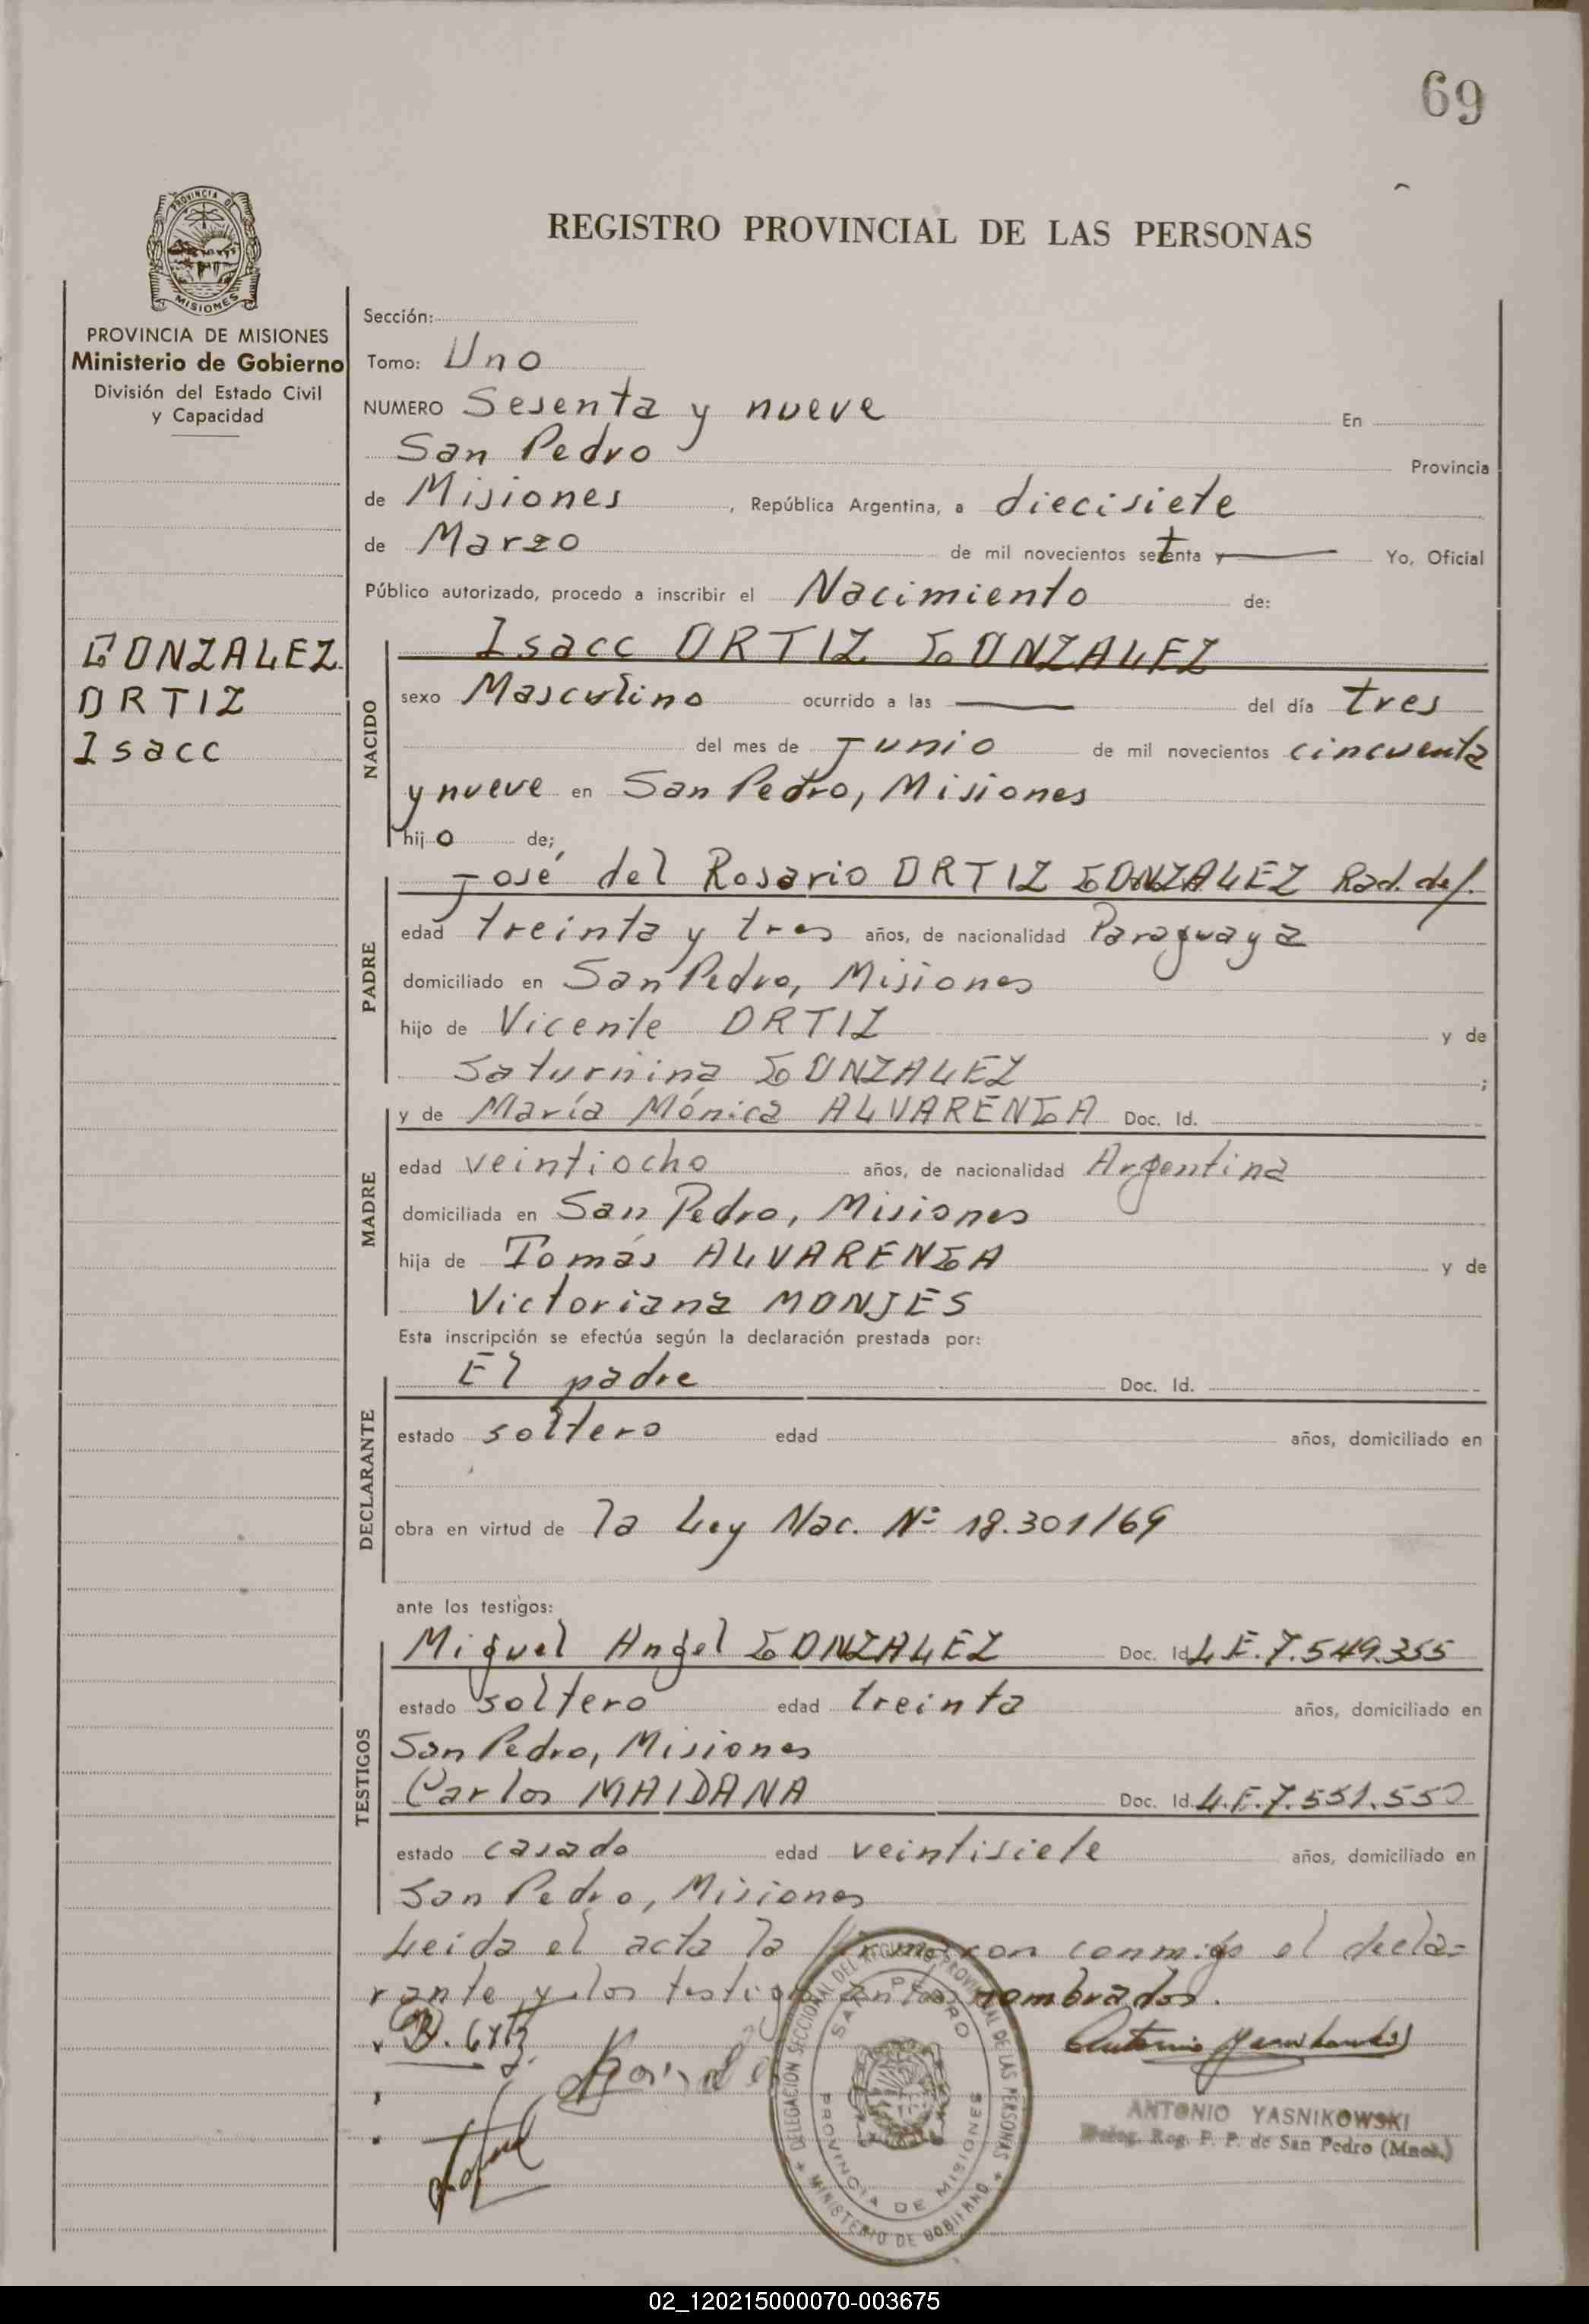 69
REGISTRO PROVINCIAL DE LAS PERSONAS
PROVINCIA DE
MISIONES
PROVINCIA DE MISIONES
Ministerio de Gobierno
División del Estado Civil
y Capacidad
GONZALEZ
ORTIZ
Isacc
Sección:
Tomo: Uno
NUMERO Sesenta y nueve En
San Pedro Provincia
de Misiones, República Argentina, a diecisiete
de Marzo de mil novecientos setenta y — Yo, Oficial
Público autorizado, procedo a inscribir el Nacimiento de:
NACIDO
Isacc ORTIZ GONZALEZ
sexo Masculino ocurrido a las — del día tres
del mes de Junio de mil novecientos cincuenta
y nueve en San Pedro, Misiones
hijo de;
PADRE
José del Rosario ORTIZ GONZALEZ Rad. def.
edad treinta y tres años, de nacionalidad Paraguaya
domiciliado en San Pedro, Misiones
hijo de Vicente ORTIZ y de
Saturnina GONZALEZ ;
MADRE
y de María Mónica ALVARENGA Doc. Id.
edad veintiocho años, de nacionalidad Argentina
domiciliada en San Pedro, Misiones
hija de Tomás ALVARENGA y de
Victoriana MONJES
Esta inscripción se efectúa según la declaración prestada por:
DECLARANTE
El padre Doc. Id.
estado soltero edad años, domiciliado en
obra en virtud de la Ley Nac. Nº 18.301/69
ante los testigos:
TESTIGOS
Miguel Angel GONZALEZ Doc. Id. L.E. 7.549.355
estado soltero edad treinta años, domiciliado en
San Pedro, Misiones
Carlos MAIDANA Doc. Id. L.E. 7.551.550
estado casado edad veintisiete años, domiciliado en
San Pedro, Misiones
Leida el acta la firmaron conmigo el decla=
rante y los testigos nombrados.
DELEGACION SECCIONAL DEL REGISTRO PROVINCIAL DE LAS PERSONAS
MINISTERIO DE GOBIERNO
SAN PEDRO
PROVINCIA DE MISIONES
ANTONIO YASNIKOWSKI
Deleg. Reg. P. P. de San Pedro (Mnes.)
02_120215000070-003675